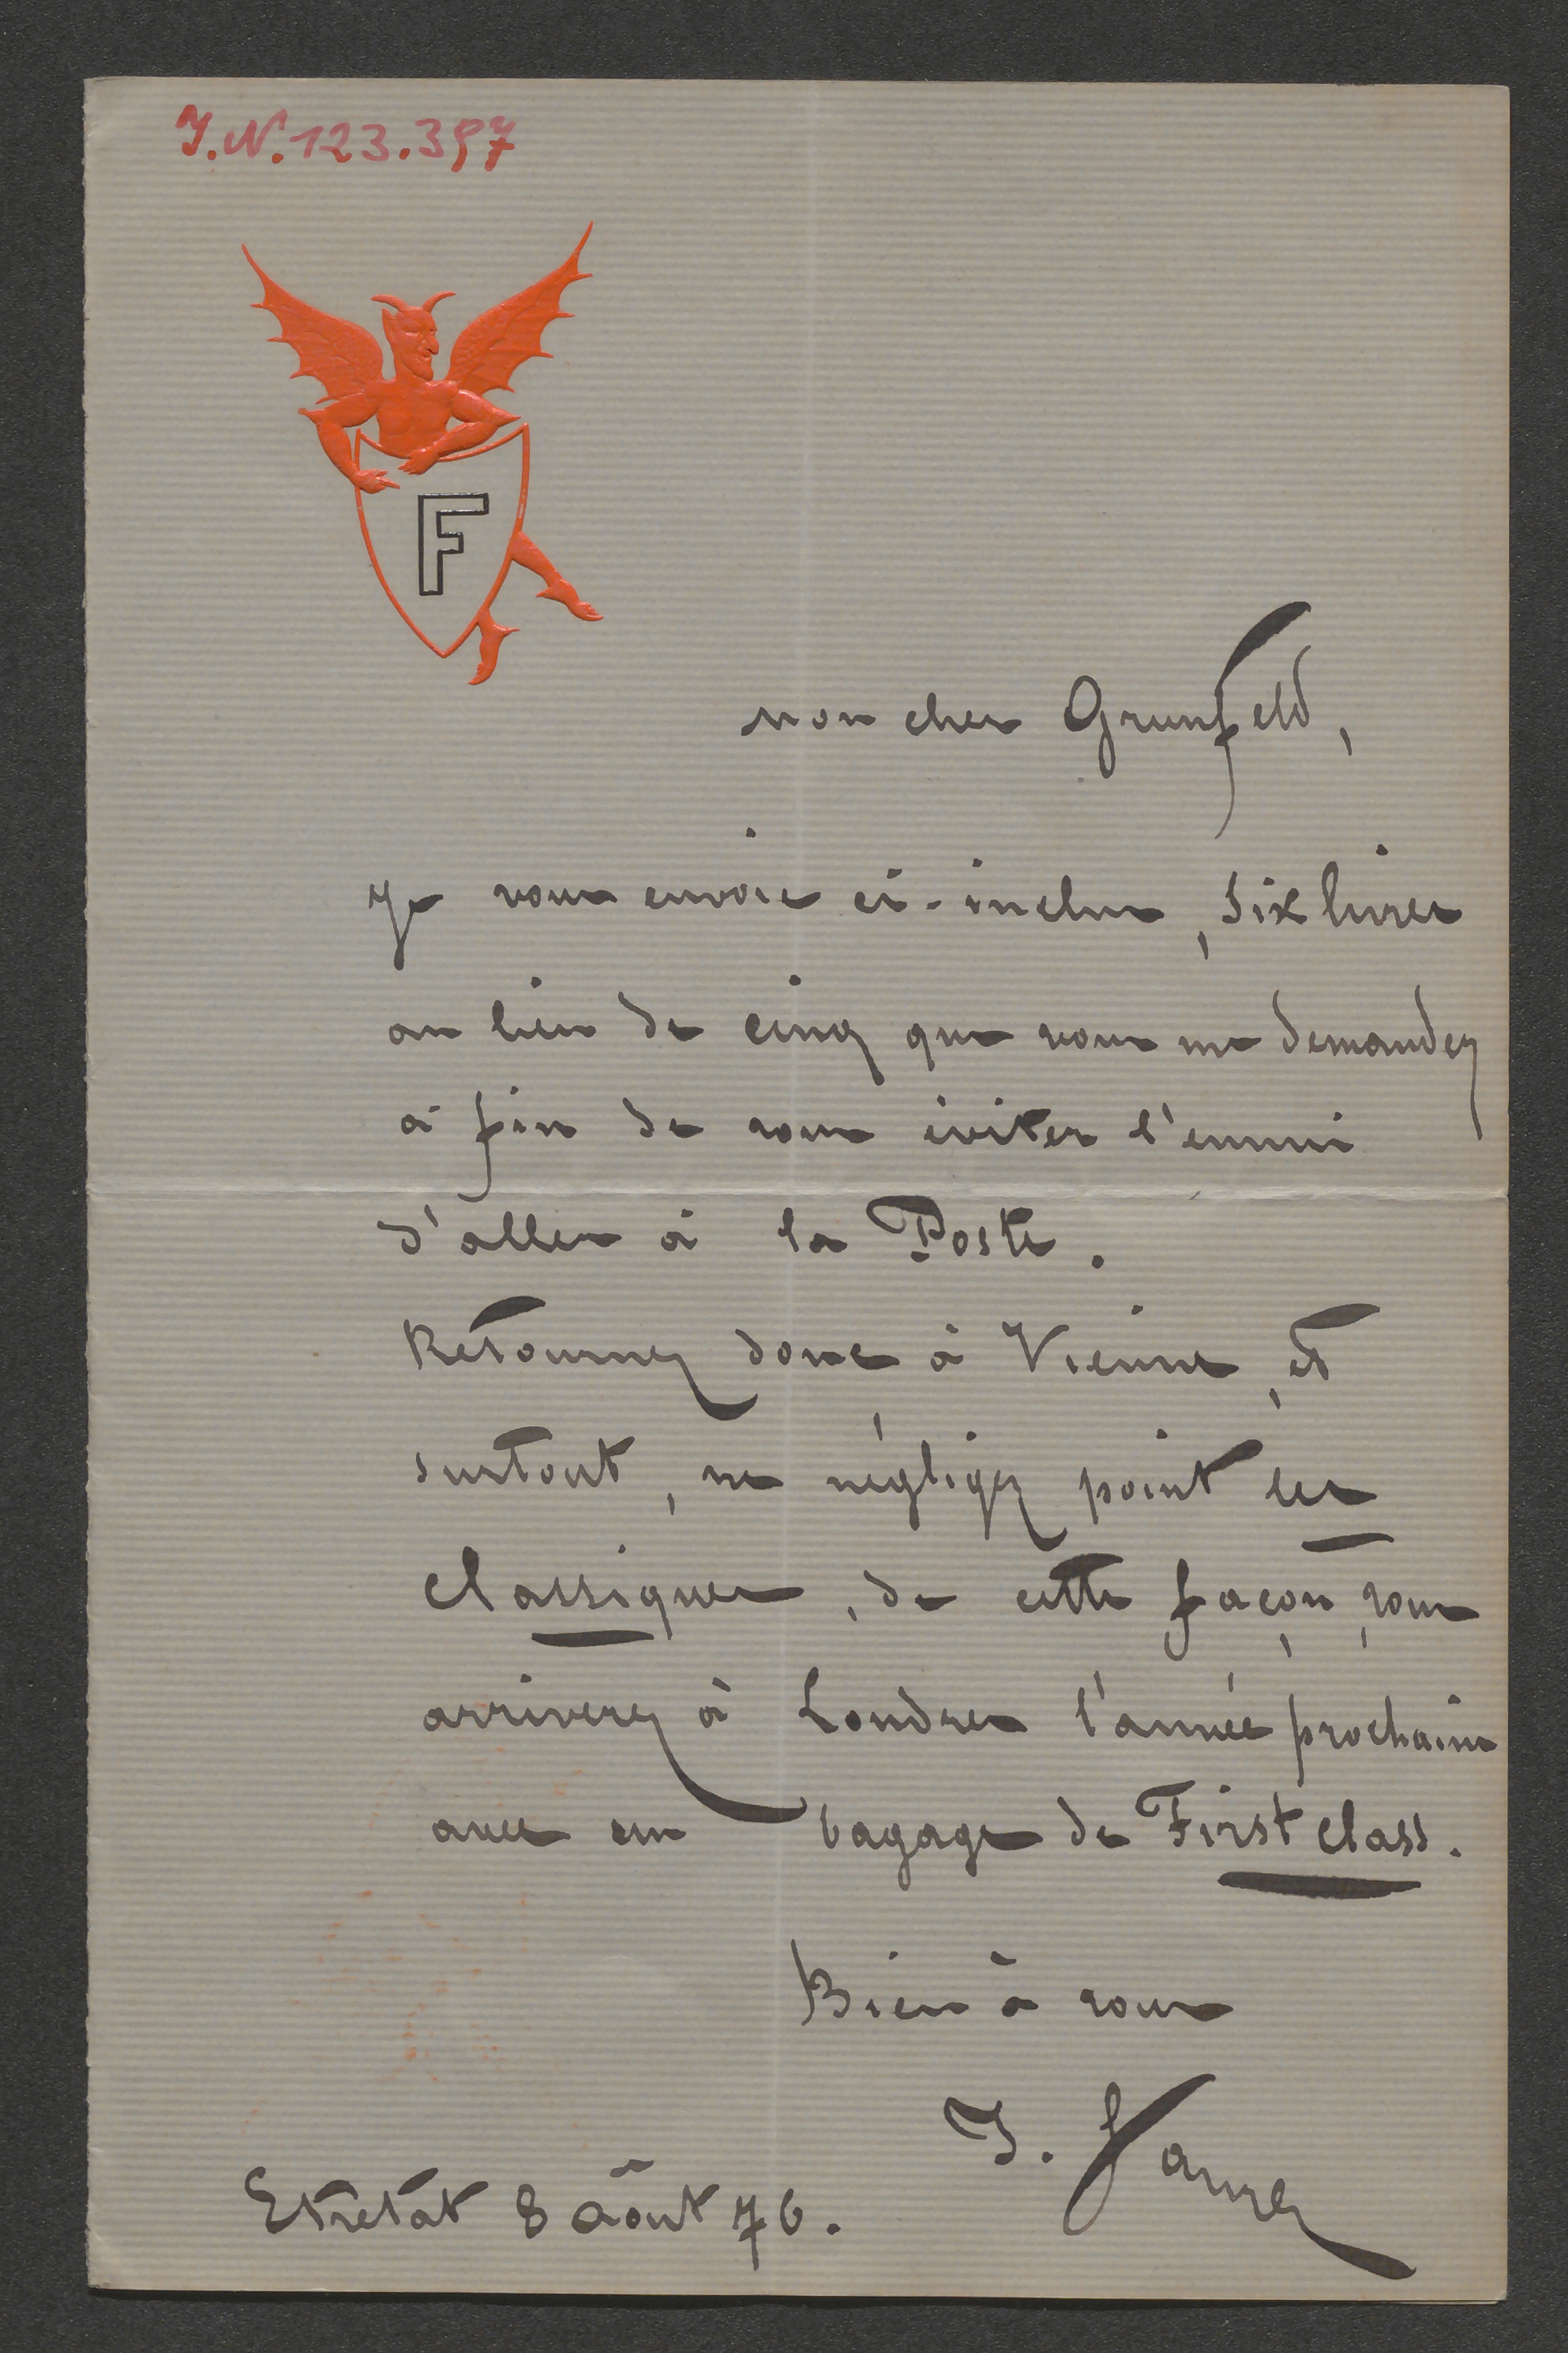 I.N. 123.397
F
mon cher Grunfeld,
Je vous envoie ci-inclus, six livres
au lieu de cinq que vous me demandez
à fin de vous éviter l'ennui
d'aller à la Poste.
Retournez donc à Vienne, et
surtout, ne négligez point les
classiques, de cette façon, vous
arriverez à Londres l'année prochaine
avec un bagage de First class.
Bien à vous
J. Faure
Etretat 8 août 76.